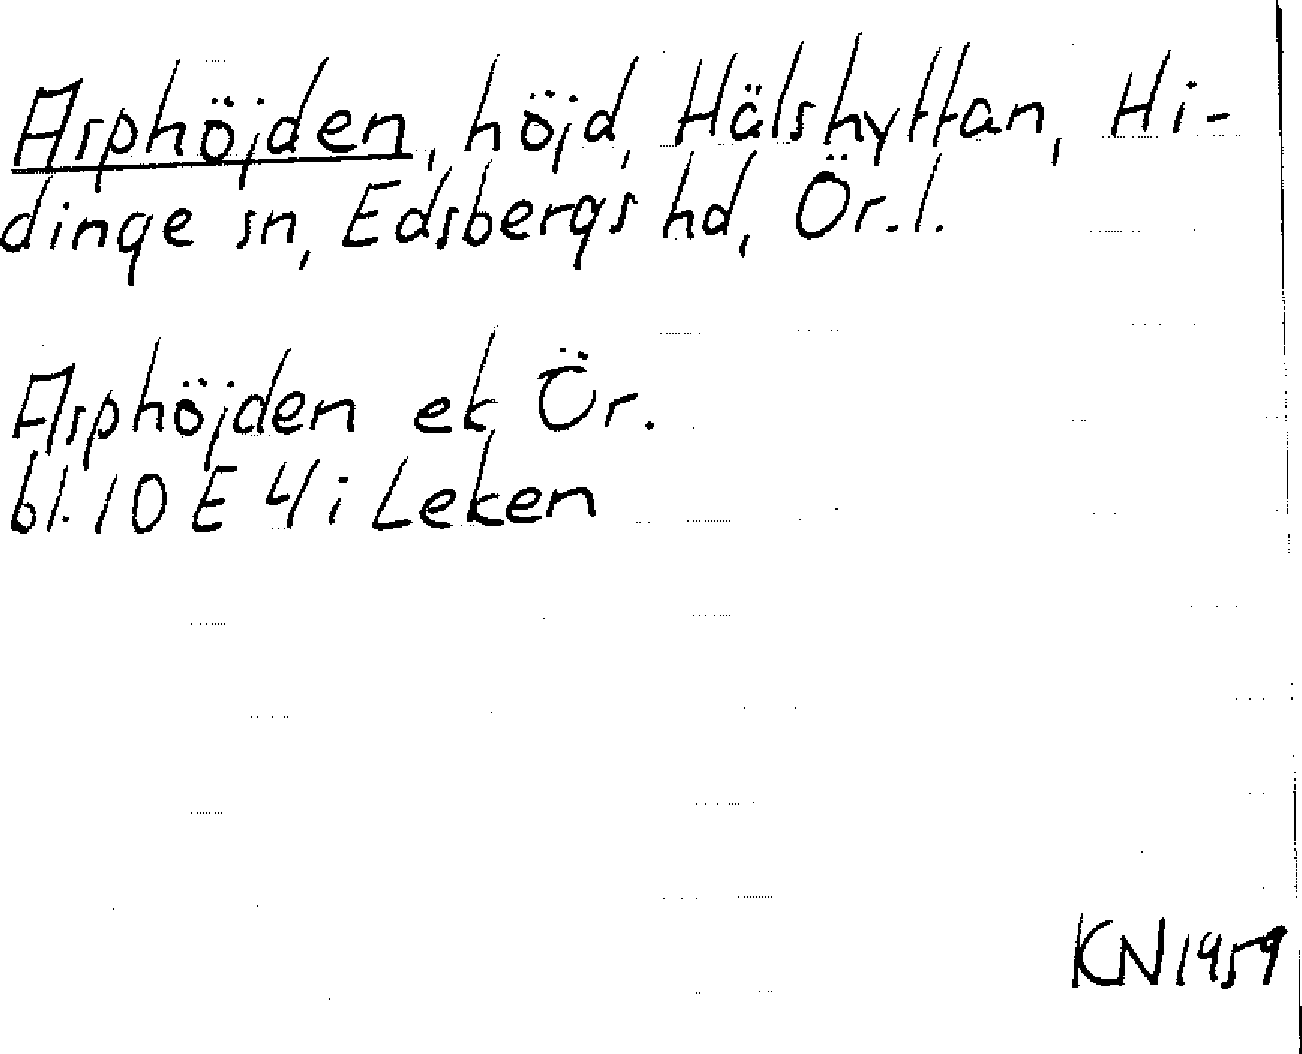 Asphöjden, höjd, Hälshyttan, Hi-
dinge sn, Edsbergs hd, Ör. l.
Asphöjden ek Ör.
bl. 10 E 4 i Leken
KN 1959